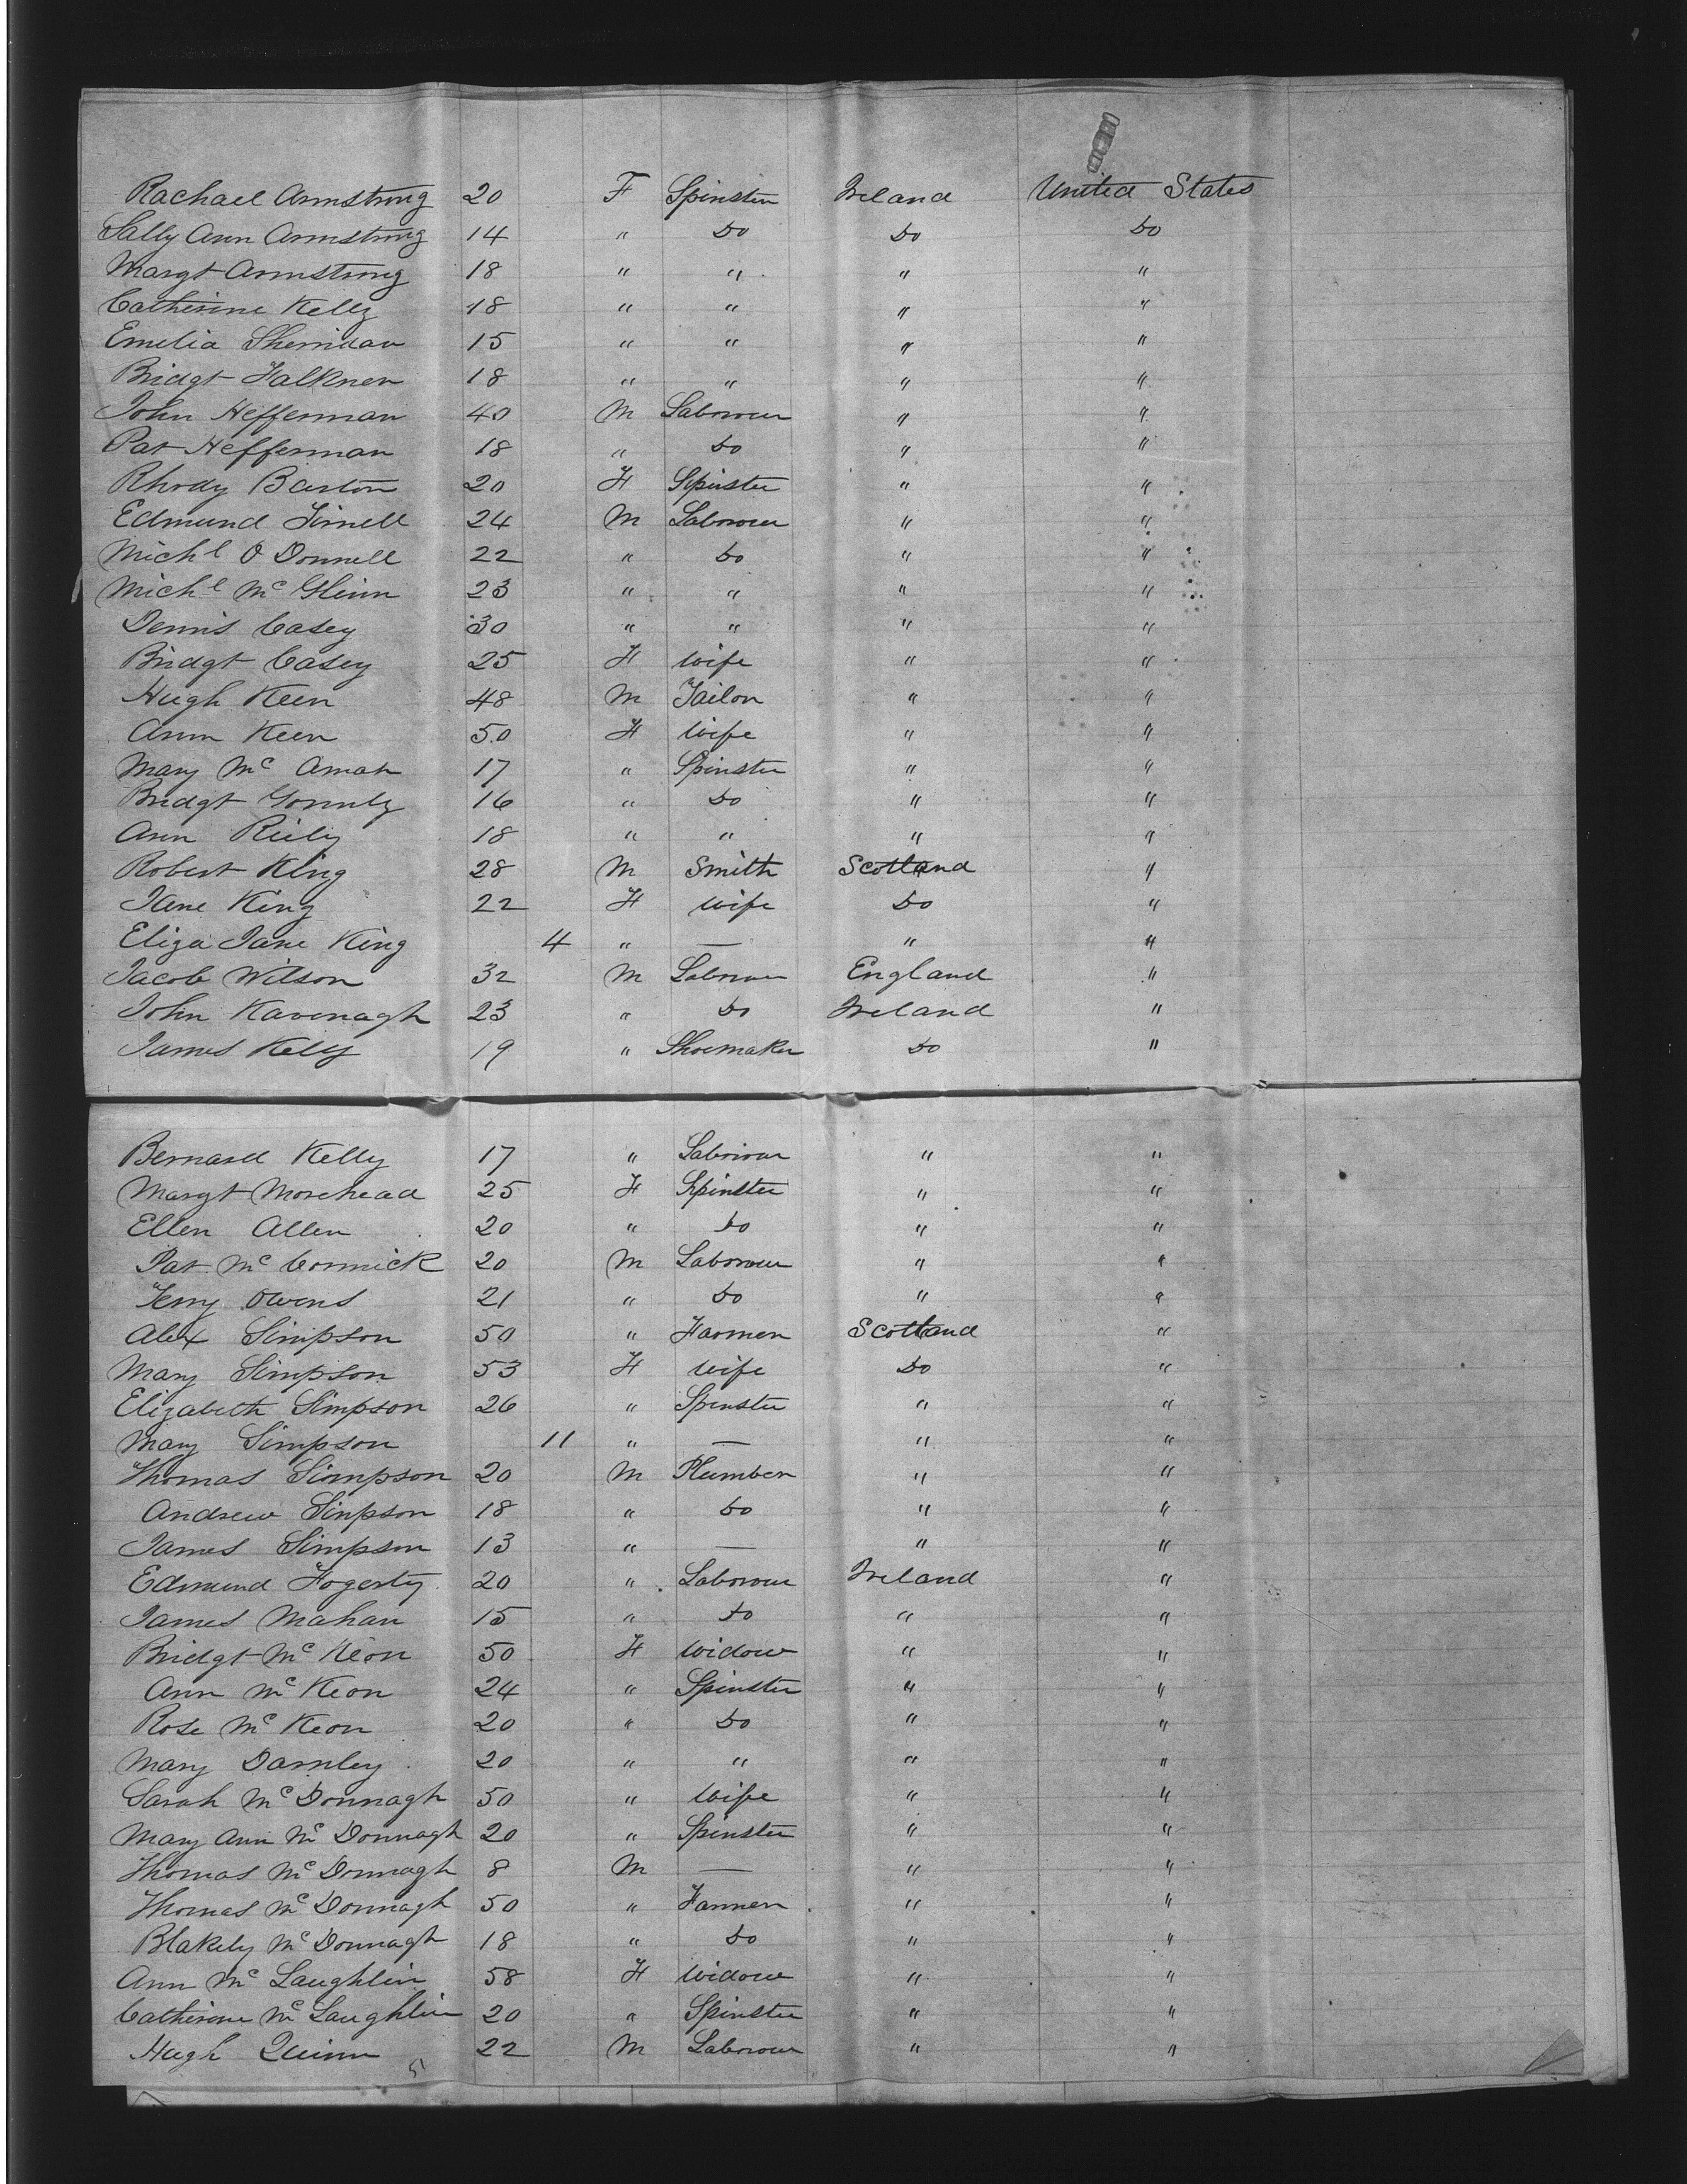 Rachael Armstrong 20 F Spinster Ireland United States
Sally Ann Armstrong 14 " Do Do Do
Margt Armstrong 18 " " " "
Catherine Kelly 18 " " " "
Emelia Sherridan 15 " " " "
Bridgt Falkner 18 " " " "
John Heffernan 40 M Labourer " "
Pat Heffernan 18 " Do " "
Rhody Barton 20 F Spinster " "
Edmund 24 M Labourer " "
Michl O Donnell 22 " Do " "
Michl Mc Glinn 23 " " " "
Dennis Casey 30 " " " "
Bridgt Casey 25 F Wife " "
Hugh Keen 48 M Tailor " "
Ann Keen 50 F Wife " "
Mary Mc 17 " Spinster " "
Bridgt Gormly 16 " Do " "
Ann Riely 18 " " " "
Robert King 28 M Smith Scotland "
Jane King 22 F Wife Do "
Eliza Jane King 4 " — " "
Jacob Wilson 32 M Labourer England "
John Kavenagh 23 " Do Ireland "
James Kelly 19 " Shoemaker Do "
Bernard Kelly 17 " Labourer " "
Margt Morehead 25 F Spinster " "
Ellen Allen 20 " Do " "
Pat Mc Cormick 20 M Labourer " "
Terry Owens 21 " Do " "
Alex Simpson 50 " Farmer Scotland "
Mary Simpson 53 F Wife Do "
Elizabeth Simpson 26 " Spinster " "
Mary Simpson 11 " — " "
Thomas Simpson 20 M Plumber " "
Andrew Simpson 18 " Do " "
James Simpson 13 " — " "
Edmund Fogerty 20 " Labourer Ireland "
James Mahan 15 " Do " "
Bridgt Mc Keon 50 F Widow " "
Ann Mc Keon 24 " Spinster " "
Rose Mc Keon 20 " Do " "
Mary Darnley 20 " " " "
Sarah Mc Donnagh 50 " Wife " "
Mary Ann Mc Donnagh 20 " Spinster " "
Thomas Mc Donnagh 8 M — " "
Thomas Mc Donnagh 50 " Farmer " "
Blakely Mc Donnagh 18 " Do " "
Ann Mc Laughlin 58 F Widow " "
Catherine Mc Laughlin 20 " Spinster " "
Hugh Quinn 22 M Labourer " "
5